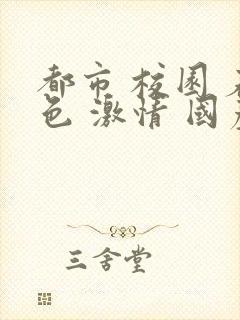 都市 校園
色 激情 國
三舍堂